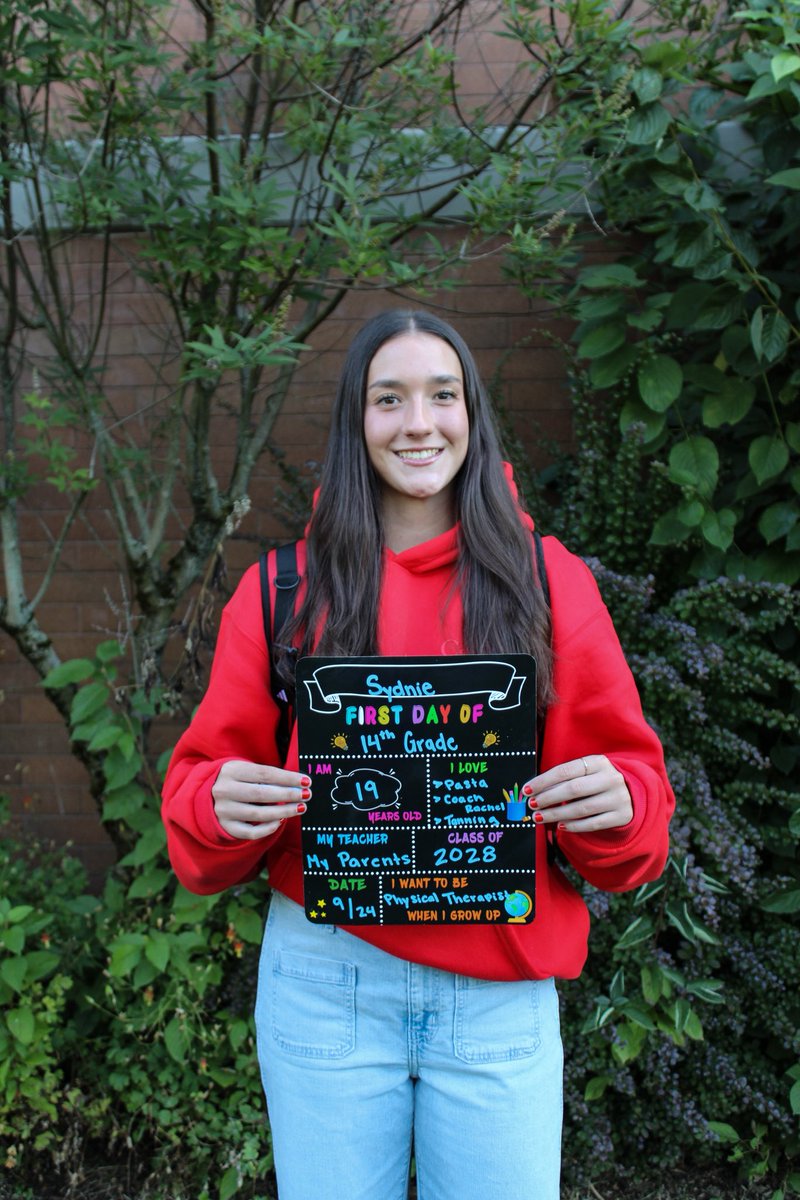 Sydnie
FIRST DAY OF
14th Grade
I AM
19
YEARS OLD
I LOVE
> Pasta
> Coach
Rachel
> Tanning
MY TEACHER
My Parents
CLASS OF
2028
DATE
9/24
I WANT TO BE
Physical Therapist
WHEN I GROW UP